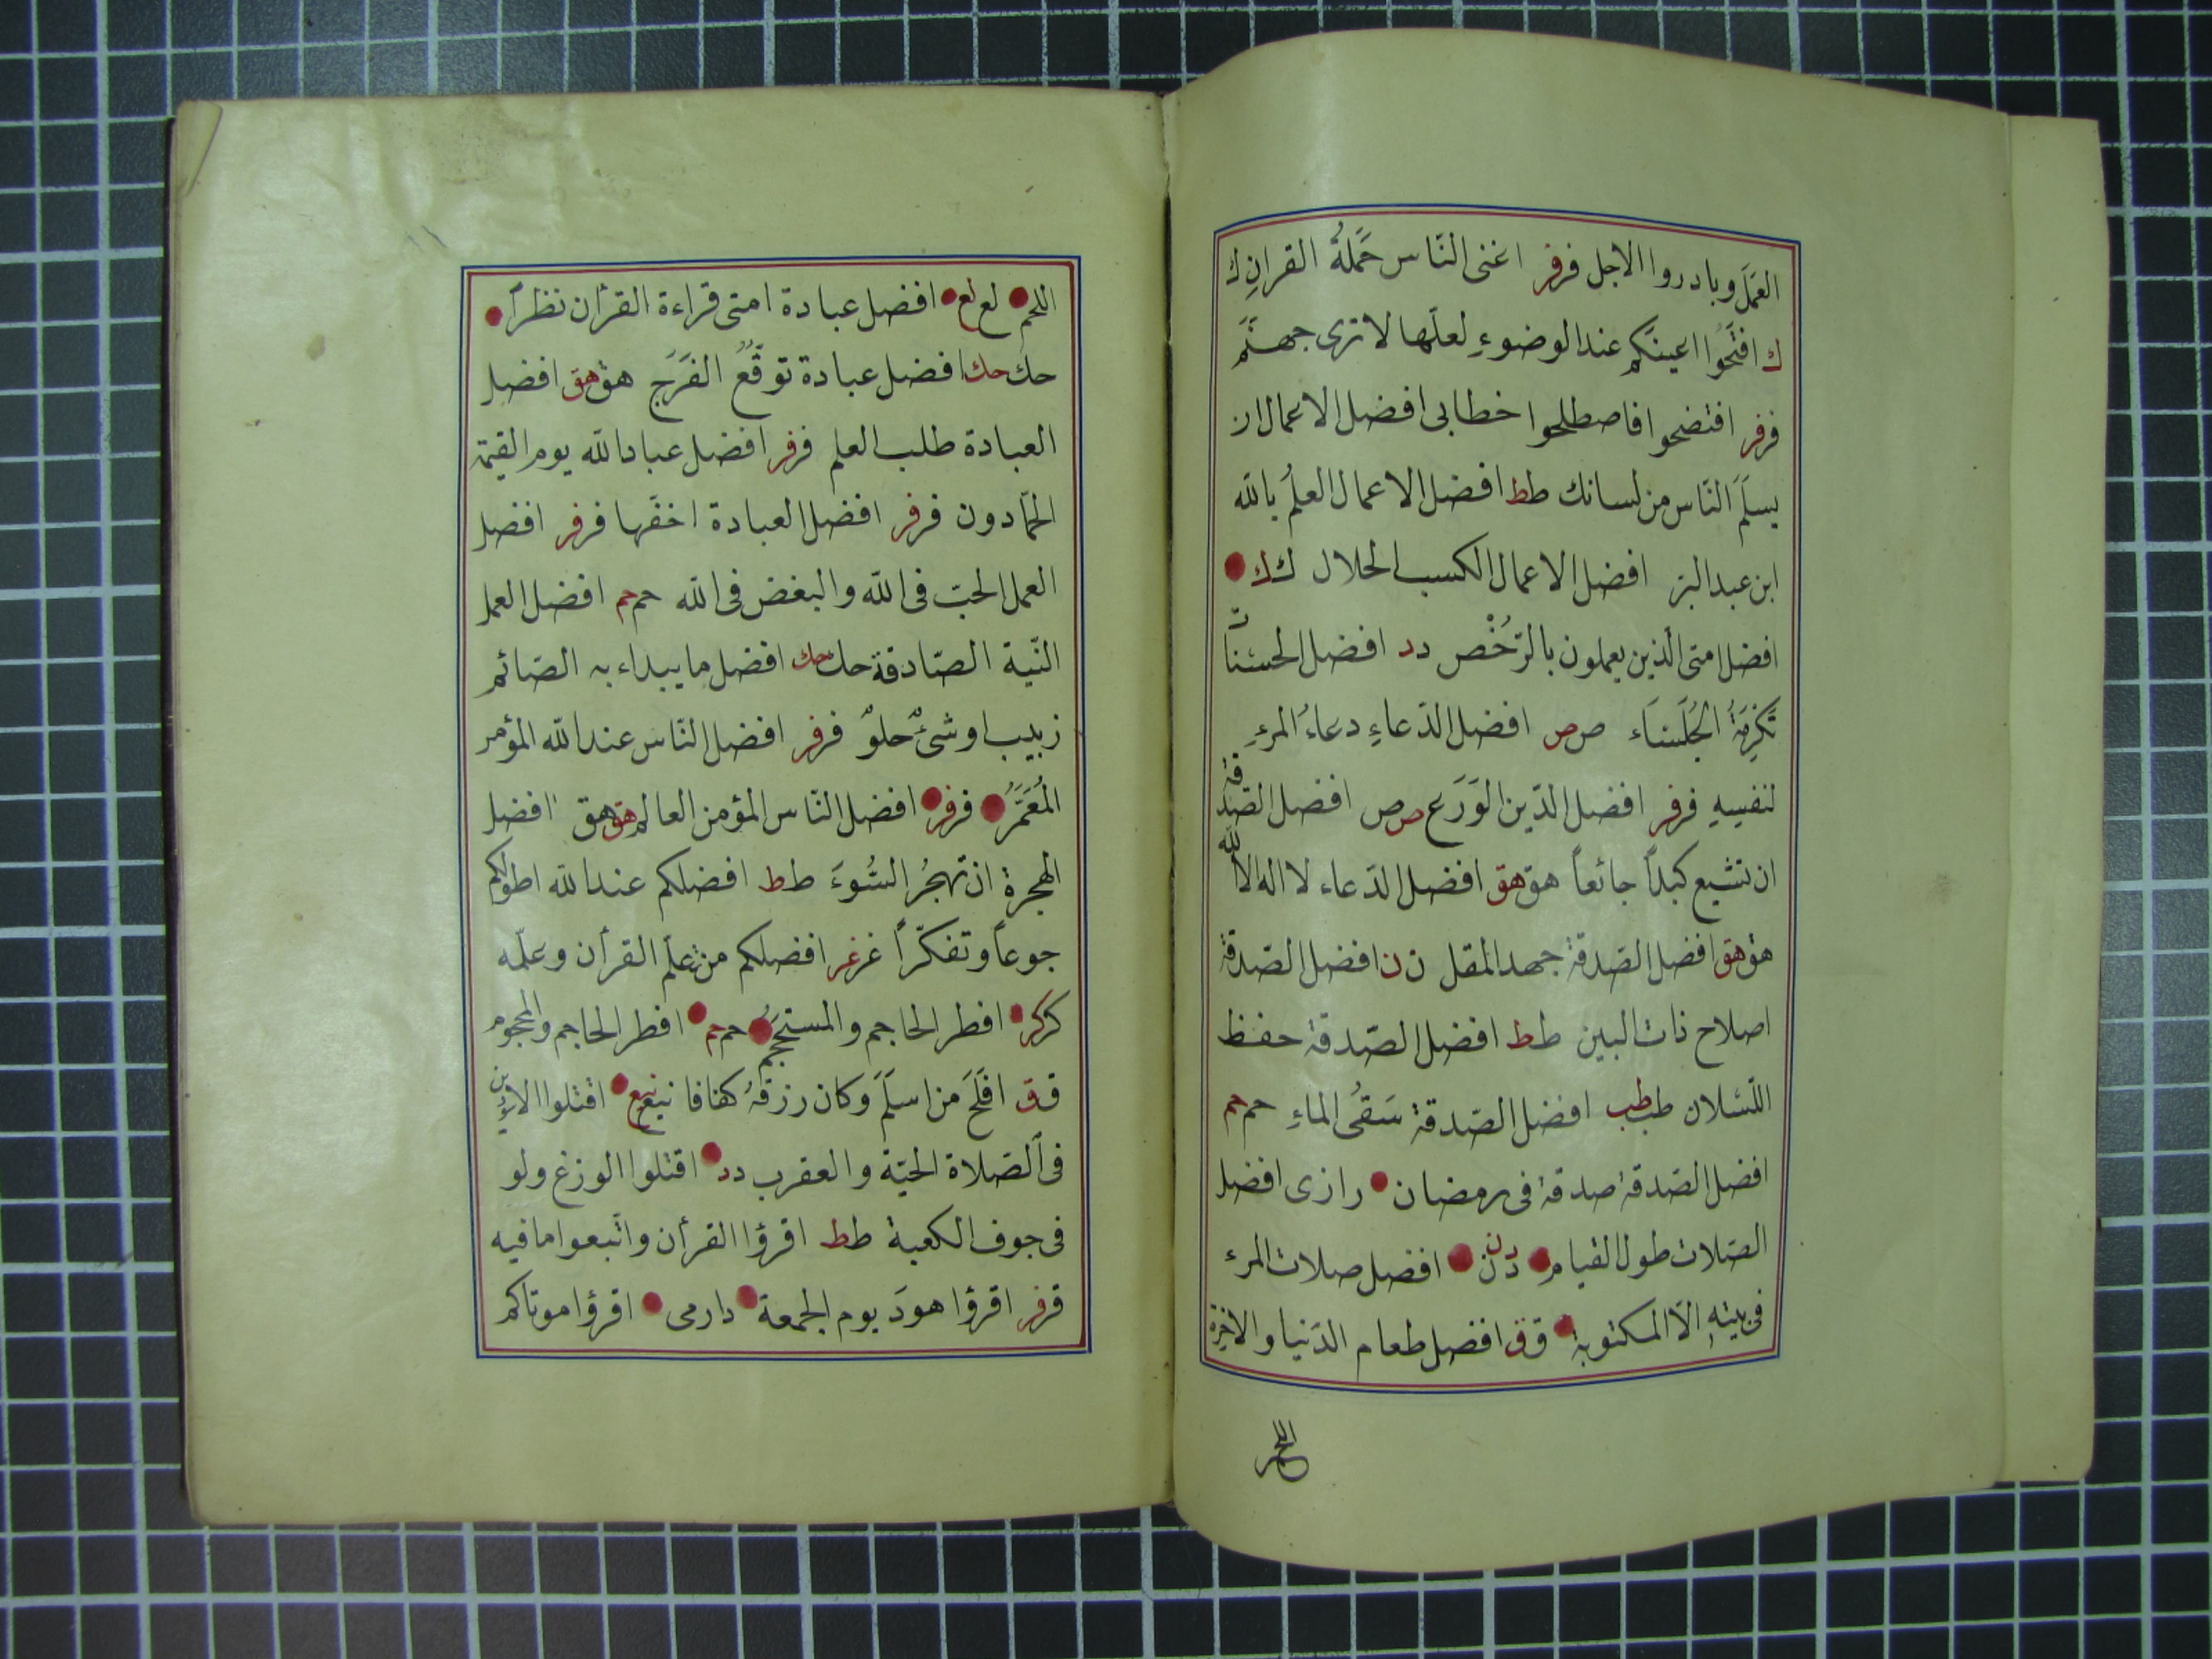 العَمَلَ وبادروا الاجل فر فر اغنى النّاس حَمَلةُ القرانِ ك
ك افتَحُوا اعينكم عند الوضوءِ لعلّها لا ترى جهنَّم
فر فر افتضحوا فاصطلحوا خطابى افضل الاعمال ان
يسلَمَ النّاس من لسانك ط ط افضل الاعمال العلمُ بالله
ابن عبد البرّ افضل الاعمال الكسب الحلال ك ك
افضل امتى الّذين يعملون بالرُّخَصِ د د افضل الحسنات
تَكْرِمَةُ الجُلَسَاء ص ص افضل الدّعاءِ دعاءُ المرءِ
لنفسِهِ فر فر افضل الدّين الوَرَع ص ص افضل الصّدقة
ان تشبع كبداً جائعاً هق هق افضل الدّعاء لا اله الا الله
هق هق افضل الصّدقة جهد المقل ن ن افضل الصّدقة
اصلاح ذات البين ط ط افضل الصّدقة حفظ
اللّسان طب طب افضل الصّدقة سَقىُ الماءِ حم حم
افضل الصّدقة صدقة فى رمضان رازى افضل
الصّلات طول القيام دن دن افضل صلات المرء
فى بيتهِ الاّ المكتوبة ق ق افضل طعام الدّنيا والاخرة
اللحم
اللحم لع لع افضل عبادة امتى قراءة القرأن نظراً
حك حك افضل عبادة توقّعُ الفَرَجِ هق هق افضل
العبادة طلب العلم فر فر افضل عباد الله يوم القيمة
الحمّادون فر فر افضل العبادة اخفّها فر فر افضل
العمل الحبّ فى الله والبغض فى الله حم حم افضل العمل
النّية الصّادقة حك حك افضل ما يبداء به الصّائم
زبيب او شئٌ حلوٌ فر فر افضل النّاس عند الله المؤمن
المُعَمَّرُ فر فر افضل النّاس المؤمن العالم هق هق افضل
الهجرة ان تهجُرُ السُّوءَ ط ط افضلكم عند الله اطولكم
جوعاً وتفكّراً غر غر افضلكم من تعلّم القرأن وعلّمه
كر كر افطر الحاجم والمستحجم حم حم افطر الحاجم والمحجوم
ق ق افلَحَ من اسلَمَ وكان رزقهُ كفافا نيع نيع اقتلوا الاسودين
فى الصّلاة الحيّة والعقرب د د اقتلوا الوزغ ولو
فى جوف الكعبة ط ط اقرؤا القرأن واتّبعوا ما فيه
فر فر اقرؤا هودَ يوم الجمعة دارمى اقرؤا موتاكم